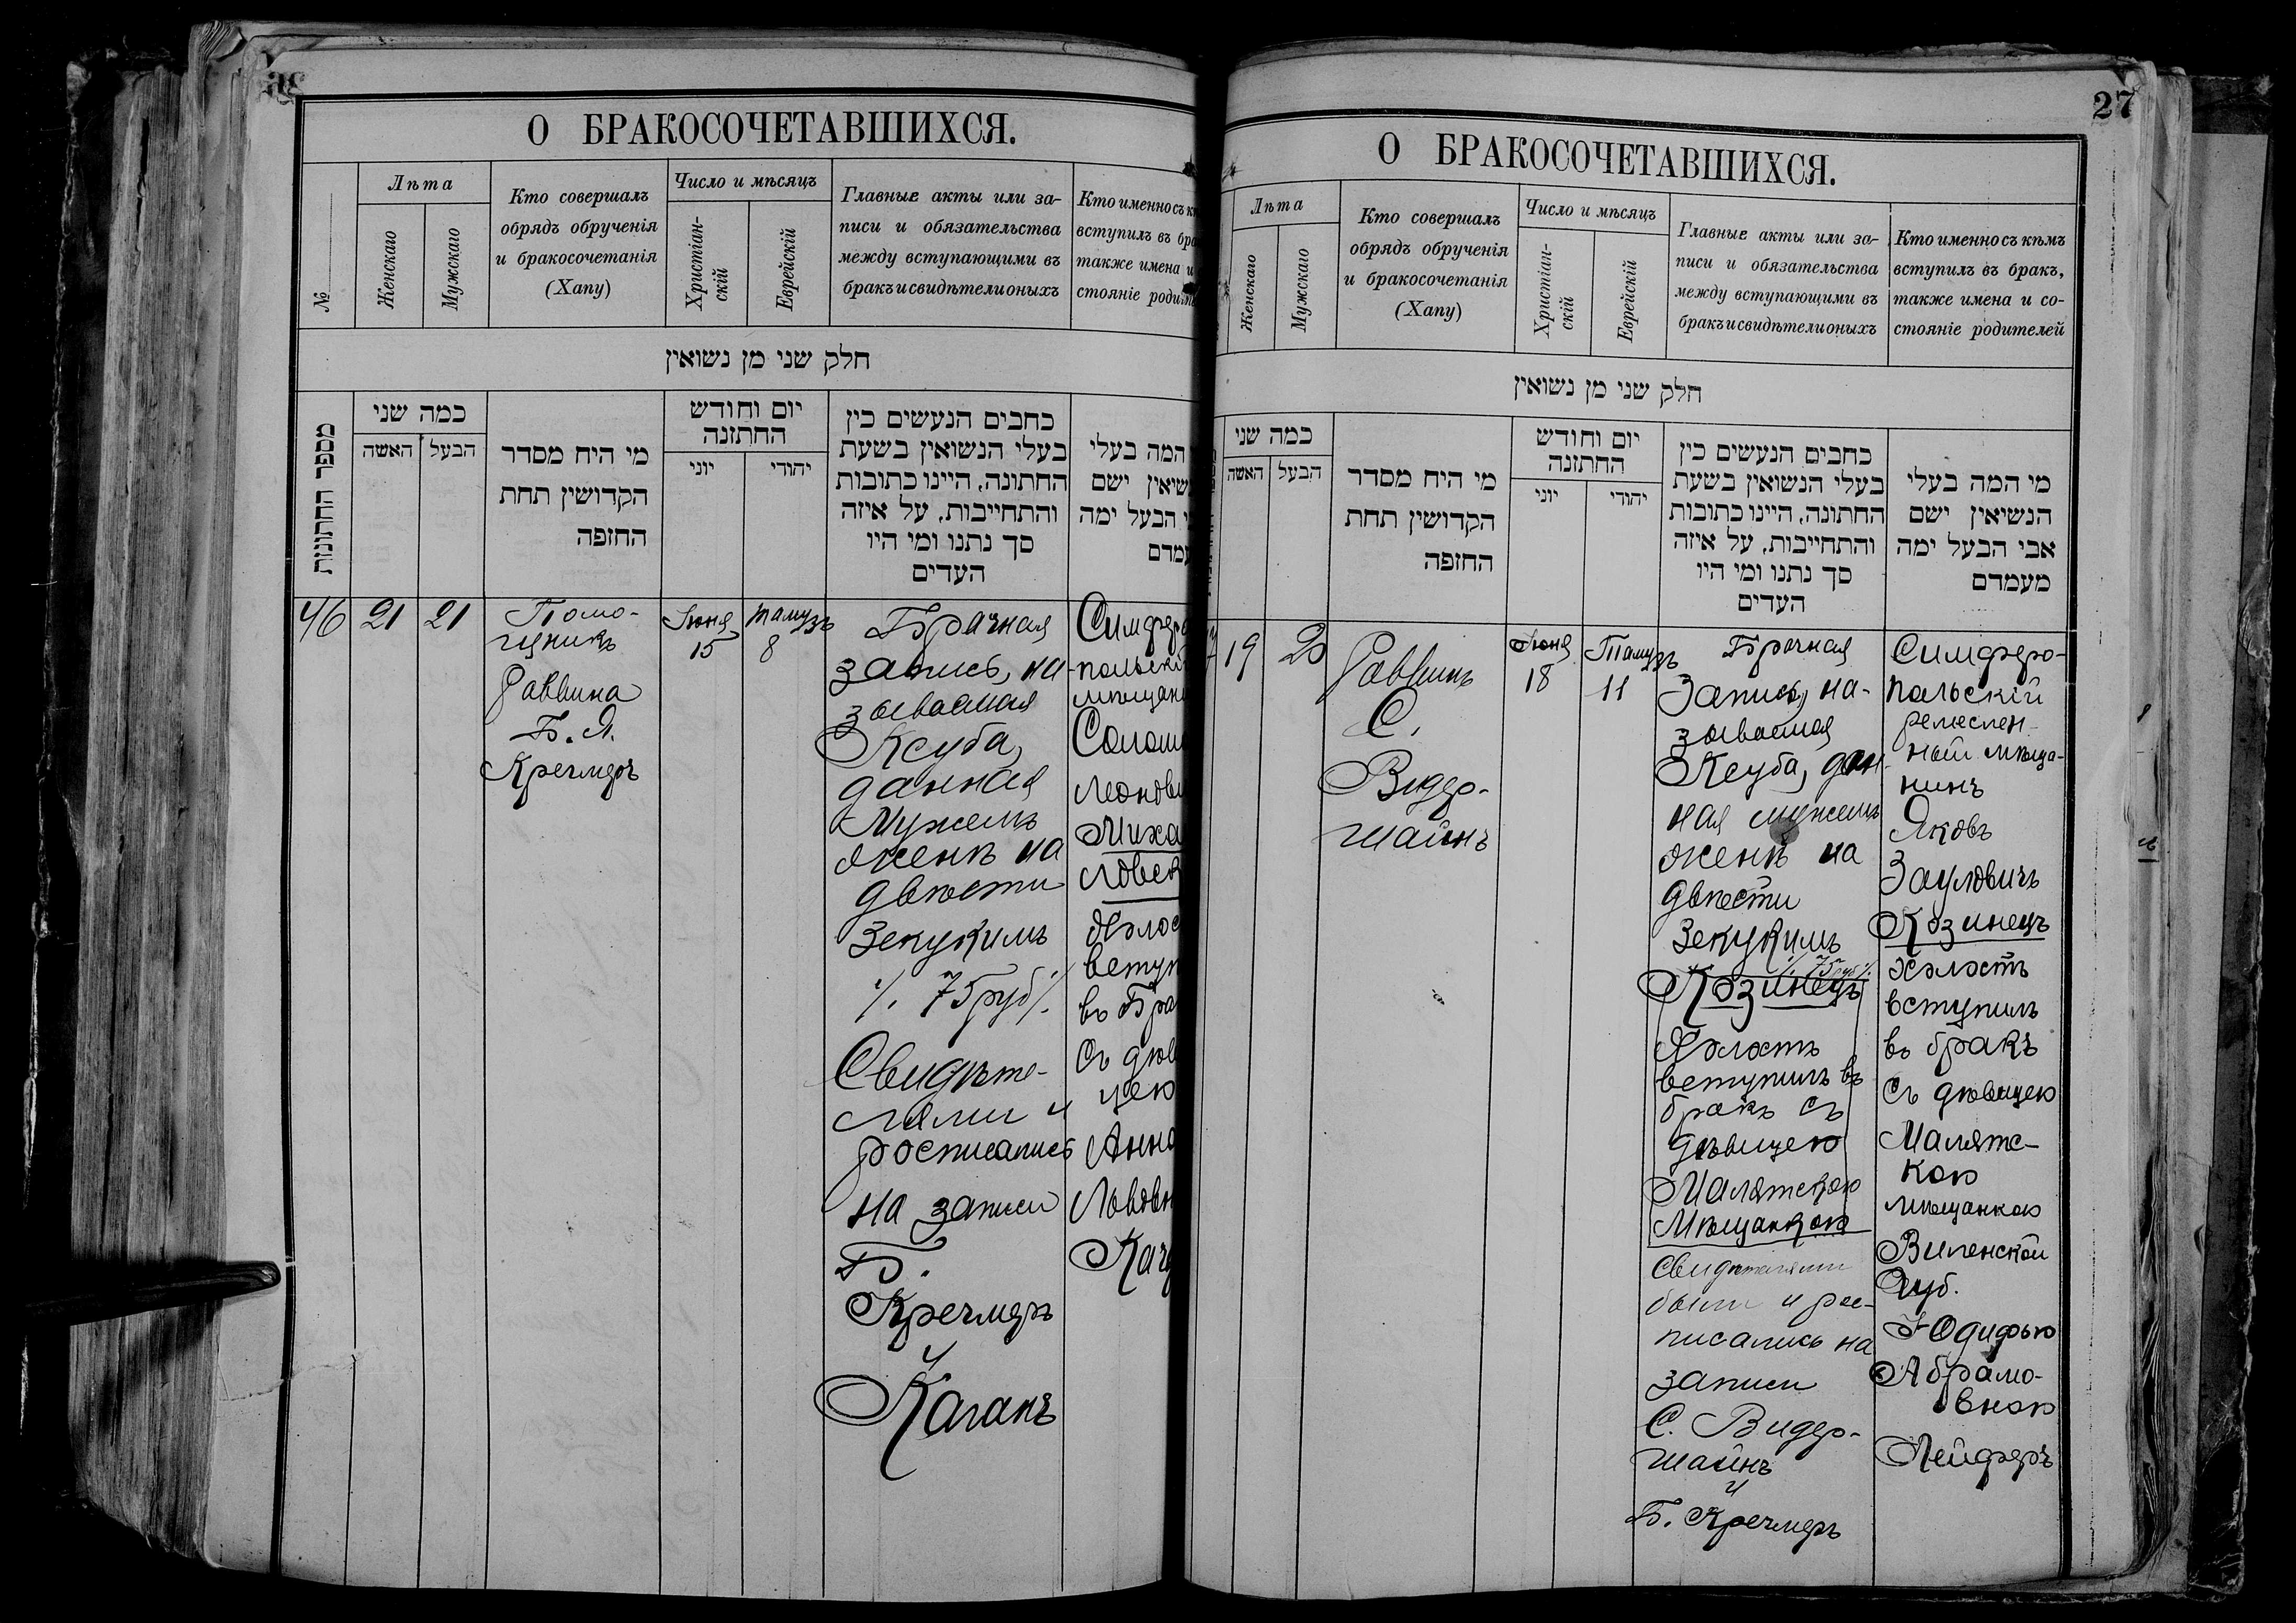 О БРАКОСОЧЕТАВШИХСЯ.
№
Лѣта
Женскаго
Мужскаго
Кто совершалъ
обрядъ обрученія
и бракосочетанія
(Хапу)
Число и мѣсяцъ
Христіан-
скій
Еврейскій
Главные акты или за-
писи и обязательства
между вступающими въ
бракъ и свидѣтели оныхъ
Кто именно съ к
вступилъ въ бра
также имена и
стояніе родит
חלק שני מן נשואין
מספר החתונות
כמה שני
האשה
הבעל
מי היח מסדר
הקדושין תחת
החזפה
יום וחודש
החתזנה
יוני
יהודי
כחבים הנעשים כין
בעלי הנשואין בשעת
החתונה, היינו כתובות
והתחייבות, על איזה
סך נתנו ומי היו
העדים
המה בעלי
שיאין ישם
י הבעל ימה
עמדם
46
21
21
Помо-
щникъ
Раввина
Б. Я.
Кречмеръ
Іюня
15
Тамузъ
8
Брачная
запись, на-
зываемая
Ксуба,
данная
Мужемъ
женѣ на
двѣсти
Зекукимъ
./. 75 руб ./.
Свидѣте-
лями и
росписались
на записи
Б.
Кречмеръ
и
Каганъ
Симферо
-польскі
мѣщани
Солом
Леонови
Миха
ловск
Холос
вступ
въ Бра
Съ дѣв
цею
Анно
Львовн
Кач
27
О БРАКОСОЧЕТАВШИХСЯ.
Лѣта
Женскаго
Мужскаго
Кто совершалъ
обрядъ обрученія
и бракосочетанія
(Хапу)
Число и мѣсяцъ
Христіан-
скій
Еврейскій
Главные акты или за-
писи и обязательства
между вступающими въ
бракъ и свидѣтели оныхъ
Кто именно съ кѣмъ
вступилъ въ бракъ,
также имена и со-
стояніе родителей
חלק שני מן נשואין
כמה שני
האשה
הבעל
מי היח מסדר
הקדושין תחת
החזפה
יום וחודש
החתזנה
יוני
יהודי
כחבים הנעשים כין
בעלי הנשואין בשעת
החתונה, היינו כתובות
והתחייבות, על איזה
סך נתנו ומי היו
העדים
מי המה בעלי
הנשיאין ישם
אבי הבעל ימה
מעמדם
19
20
Раввинъ
С.
Видер-
шайнъ
Іюня
18
Тамузъ
11
Брачная
Запись, на-
зываемая
Ксуба, дан-
ная мужемъ
женѣ на
двѣсти
Зекукимъ
./. 75 руб ./.
Козинецъ
Холостъ
вступилъ въ
бракъ съ
дѣвицею
Малятскою
Мѣщанкою
Свидѣтелями
были и рос-
писались на
записи
С. Видер-
шайнъ
и
Б. Кречмеръ
Симферо-
польскій
ремеслен-
ный мѣща-
нинъ
Яковъ
Зауловичъ
Козинецъ
холостъ
вступилъ
въ бракъ
съ дѣвицею
Малятс-
кою
мѣщанкою
Виленской
Губ.
Юдифью
Абрамо-
вною
Лейферъ